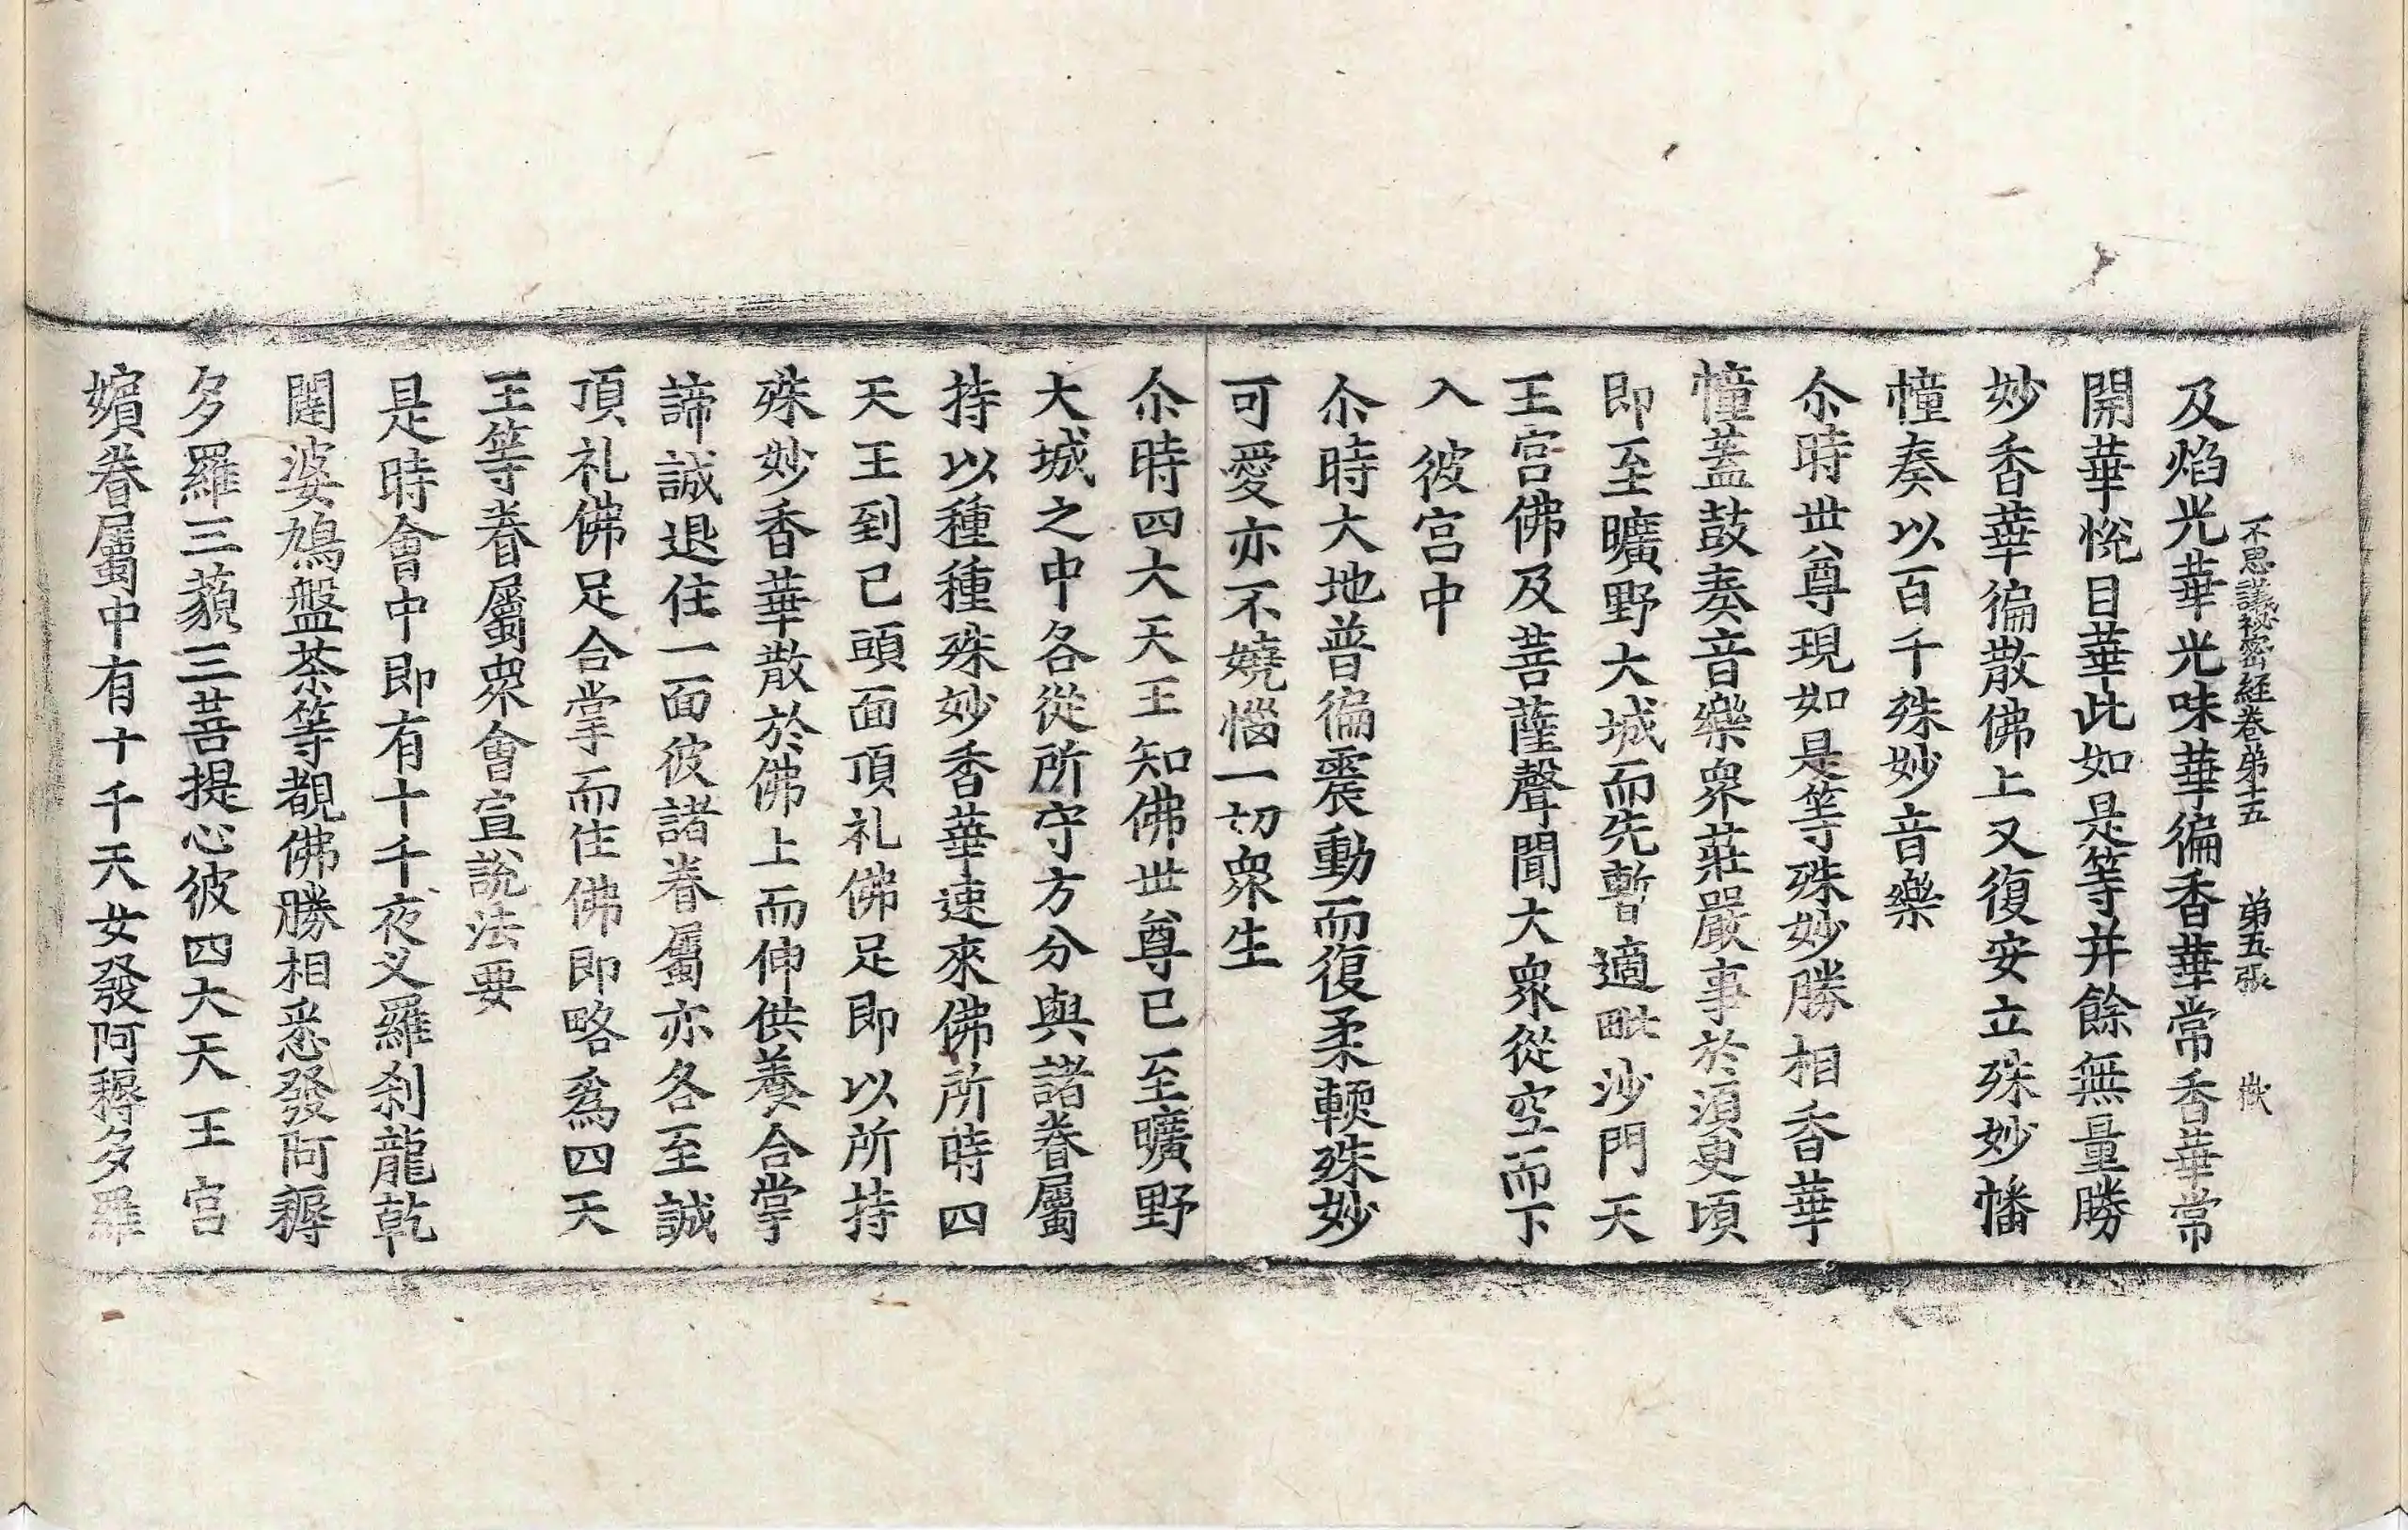 不思議祕密經卷苐十五 苐五張 㪺
及焰光華光味華徧香華常香華常
開華悅目華此如是等并餘無量勝
妙香華徧散佛上又復安立殊妙幡
幢奏以百千殊妙音樂
尒時世尊現如是等殊妙勝相香華
幢蓋鼓奏音樂衆莊嚴事於須臾頃
即至曠野大城而先暫適毗沙門天
王宮佛及菩薩聲聞大衆從空而下
入彼宮中
尒時大地普徧震動而復柔輭殊妙
可愛亦不嬈惱一切衆生
尒時四大天王知佛世尊已至曠野
大城之中各從所守方分與諸眷屬
持以種種殊妙香華速來佛所時四
天王到已頭面頂礼佛足即以所持
殊妙香華散於佛上而伸供養合掌
諦誠退住一面彼諸眷屬亦各至誠
頂礼佛足合掌而住佛即略爲四天
王等眷屬衆會宣說法要
是時會中即有十千夜叉羅刹龍乾
闥婆鳩盤茶等覩佛勝相悉發阿耨
多羅三藐三菩提心彼四大天王宮
嬪眷屬中有十千天女發阿耨多羅